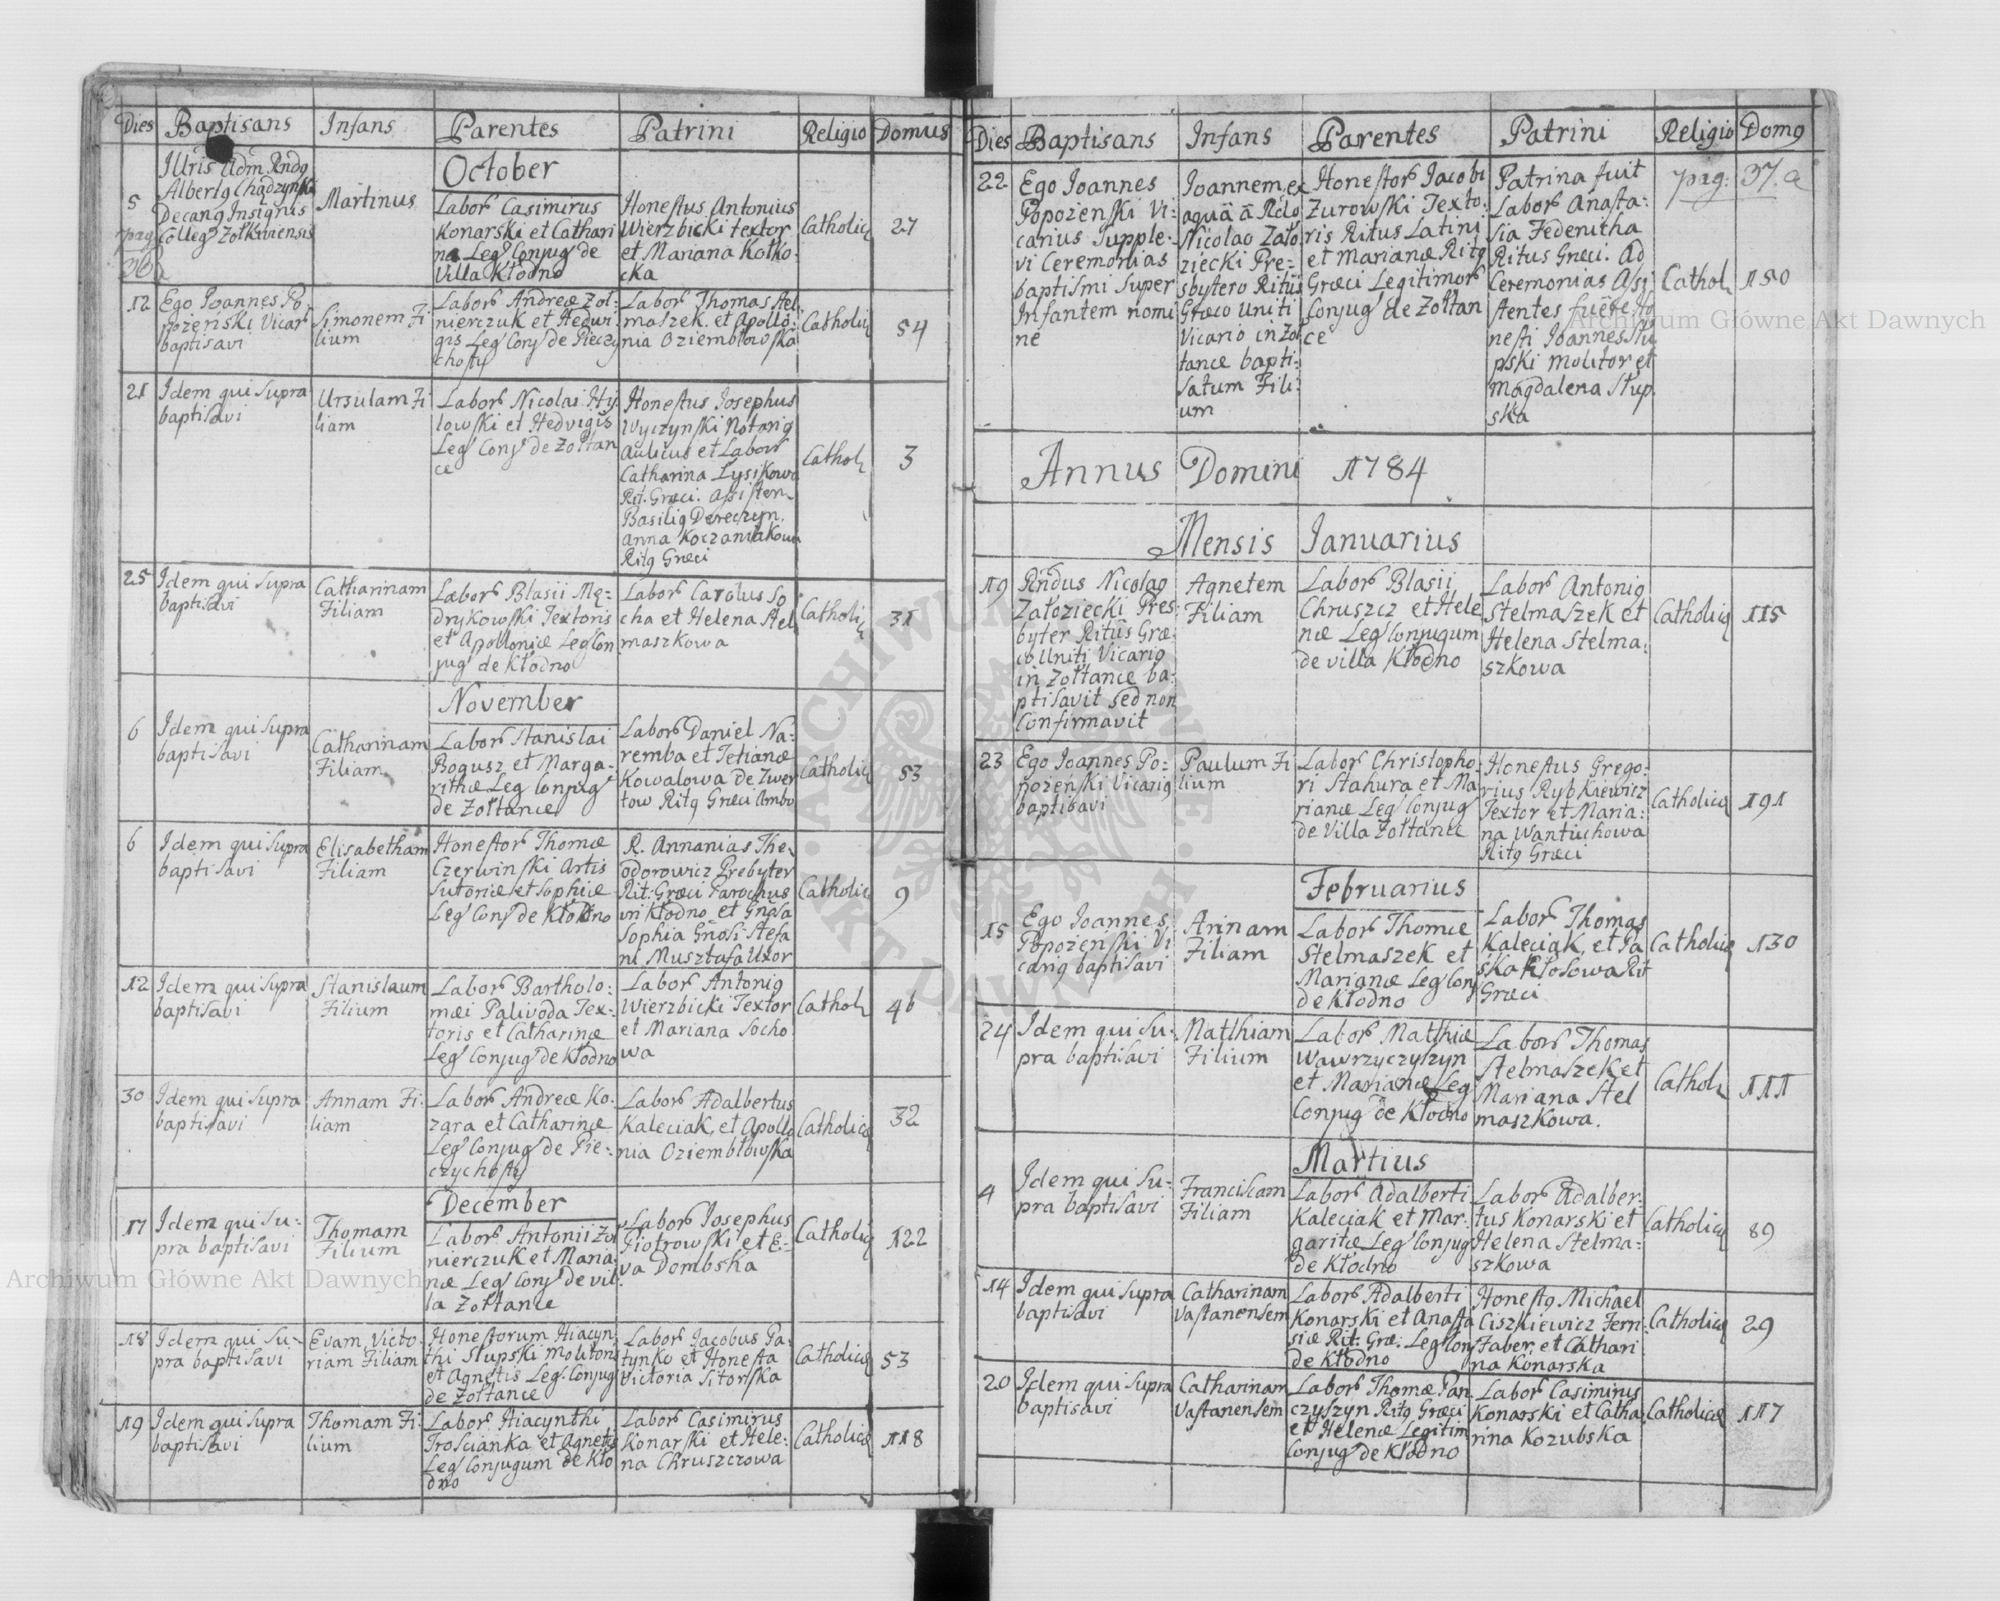 Dies Baptisans Infans Parentes Patrini Religio Domus
October
5
pag
36
Illris Adm Rndq
Albertq Chądzyński
Decanq Insignis
Colleg Zołkwiensis
Martinus
Labor Casimirus
Konarski et Cathari
na Leg Conjug de
Villa Kłodno
Honestus Antonius
Wierzbicki textor
et Mariana Kotko
cka
Catholicq
27
12
Ego Joannes Po
pożeński Vicar
baptisavi
Simonem Fi
lium
Labor Andreæ Zoł-
nierczuk et Hedwi
gis Leg Conj de Pieczy
chosty
Labor Thomas Stel
maszek et Apollo-
nia Oziembłowska
Catholicq
54
21
Idem qui supra
baptisavi
Ursulam Fi
liam
Labor Nicolai Hy
lowski et Hedvigis
Leg Conj de Zołtan
ce
Honestus Josephus
Wyczynski Notariq
Aulicus et Labor
Catharina Lysikowa
Rit. Græci. Assisten
Basiliq Dereczyn.
Anna Koczaniakowa
Ritq Græci
Cathol
3
25
Idem qui supra
baptisavi
Catharinam
Filiam
Labor Blasii Mę-
drykowski Textoris
et Apolloniæ Leg Con
jug de Kłodno
Labor Carolus So
cha et Helena Stel
maszkowa
Catholic
31
November
6
Idem qui supra
baptisavi
Catharinam
Filiam
Labor Stanislai
Bogusz et Marga-
rithæ Leg Conjug
de Zołtance
Labor Daniel Na-
remba et Tetianæ
Kowalowa de Zwer
tow Ritq Græci Ambo
Catholicq
53
6
Idem qui supra
baptisavi
Elisabetham
Filiam
Honestor Thomæ
Czerwinski Artis
Sutoriæ et Sophiæ
Leg Conj de Kłodno
R. Annanias The
odorowicz Prebyter
Rit: Græci Parochus
in Kłodno et Gnosa
Sophia Gnosi Stefa
ni Musztafa Uxor
Catholicq
9
12
Idem qui supra
baptisavi
Stanislaum
Filium
Labor Bartholo-
mæi Palivoda Tex-
toris et Catharinæ
Leg Conjug de Kłodno
Labor Antoniq
Wierzbicki Textor
et Mariana Socho
wa
Cathol
46
30
Idem qui supra
baptisavi
Annam Fi-
liam
Labor Andreæ Ko-
zara et Catharinæ
Leg Conjug de Pie-
czychosty
Labor Adalbertus
Kaleciak, et Apollo
nia Oziembłowska
Catholicq
32
December
17
Idem qui su-
pra baptisavi
Thomam
Filium
Labor Antonii Zoł
nierczuk et Maria
næ Leg Conj de vil-
la Zołtance
Labor Josephus
Piotrowski et E-
va Dombska
Catholicq
122
18
Idem qui su-
pra baptisavi
Evam Victo
riam Filiam
Honestorum Hiacyn
thi Slupski Molitoris
et Agnetis Leg. Conjug
de Zołtance
Labor Jacobus Pa-
tynko et Honesta
Victoria Sitorska
Catholicq
53
19
Idem qui supra
baptisavi
Thomam Fi
lium
Labor Hiacynthi
Trościanka et Agnetis
Leg Conjugum de Kło
dno
Labor Casimirus
Konarski et Hele-
na Chruszczowa
Catholicq
118
Dies Baptisans Infans Parentes Patrini Religio Domq
22
Ego Joannes
Popożenski Vi-
carius Supple-
vi Ceremonias
baptismi super
Infantem nomi
ne
Joannem, ex
aquā ā Rdo
Nicolao Zało
ziecki Pre-
sbytero Ritūs
Græco Uniti
Vicario in Zoł
tance bapti-
satum Fili-
um
Honestor Jacobi
Zurowski Texto-
ris Ritus Latini
et Marianæ Ritq
Græci Legitimor
Conjug de Zołtan
ce
Patrina fuit
Labor Anasta-
sia Fedenitha
Ritus Græci. Ad
Ceremonias Assi
stentes fuēre Ho
nesti Joannes Stu
pski Molitor et
Magdalena Slup
ska
pag: 37. a
Cathol
150
Annus Domini 1784
Mensis Januarius
19
Rndus Nicolaq
Załoziecki Pres
byter Ritūs Græ
co Uniti Vicariq
in Zołtance ba-
ptisavit sed non
Confirmavit
Agnetem
Filiam
Labor Blasii
Chruszcz et Hele
næ Leg Conjugum
de villa Kłodno
Labor Antoniq
Stelmaszek et
Helena Stelma-
szkowa
Catholicq
115
23
Ego Joannes Po-
pożenski Vicariq
baptisavi
Paulum Fi
lium
Labor Christopho-
ri Stahura et Ma
rianæ Leg Conjug
de Villa Zołtance
Honestus Grego-
rius Rybkiewicz
Textor et Maria-
na Wantuchowa
Ritq Græci
Catholicq
191
Februarius
15
Ego Joannes
Popożenski Vi
cariq baptisavi
Annam
Filiam
Labor Thomæ
Stelmaszek et
Marianæ Leg Conj
de Kłodno
Labor Thomas
Kaleciak, et Pa
ska Kłosowa Rit
Græci
Catholicq
130
24
Idem qui su-
pra baptisavi
Matthiam
Filium
Labor Matthiæ
Wawrzyczyszyn
et Marianæ Leg
Conjug de Kłodno
Labor Thomas
Stelmaszek et
Mariana Stel
maszkowa.
Cathol
111
Martius
4
Idem qui su-
pra baptisavi
Franciscam
Filiam
Labor Adalberti
Kaleciak et Mar-
garitæ Leg Conjug
de Kłodno
Labor Adalber-
tus Konarski et
Helena Stelma-
szkowa
Catholicq
89
14
Idem qui supra
baptisavi
Catharinam
Vastanensem
Labor Adalberti
Konarski et Anasta
siæ Rit: Græ: Leg Conj
de Kłodno
Honestq Michael
Ciszkiewicz Ferri
Faber, et Cathari
na Konarska
Catholicq
29
20
Idem qui supra
baptisavi
Catharinam
Vastanensem
Labor Thomæ Pan
czyszyn Ritq Græci
et Helenæ Legitim
Conjug de Kłodno
Labor Casimirus
Konarski et Catha
rina Kozubska
Catholicq
117
Archiwum Główne Akt Dawnych
Archiwum Główne Akt Dawnych